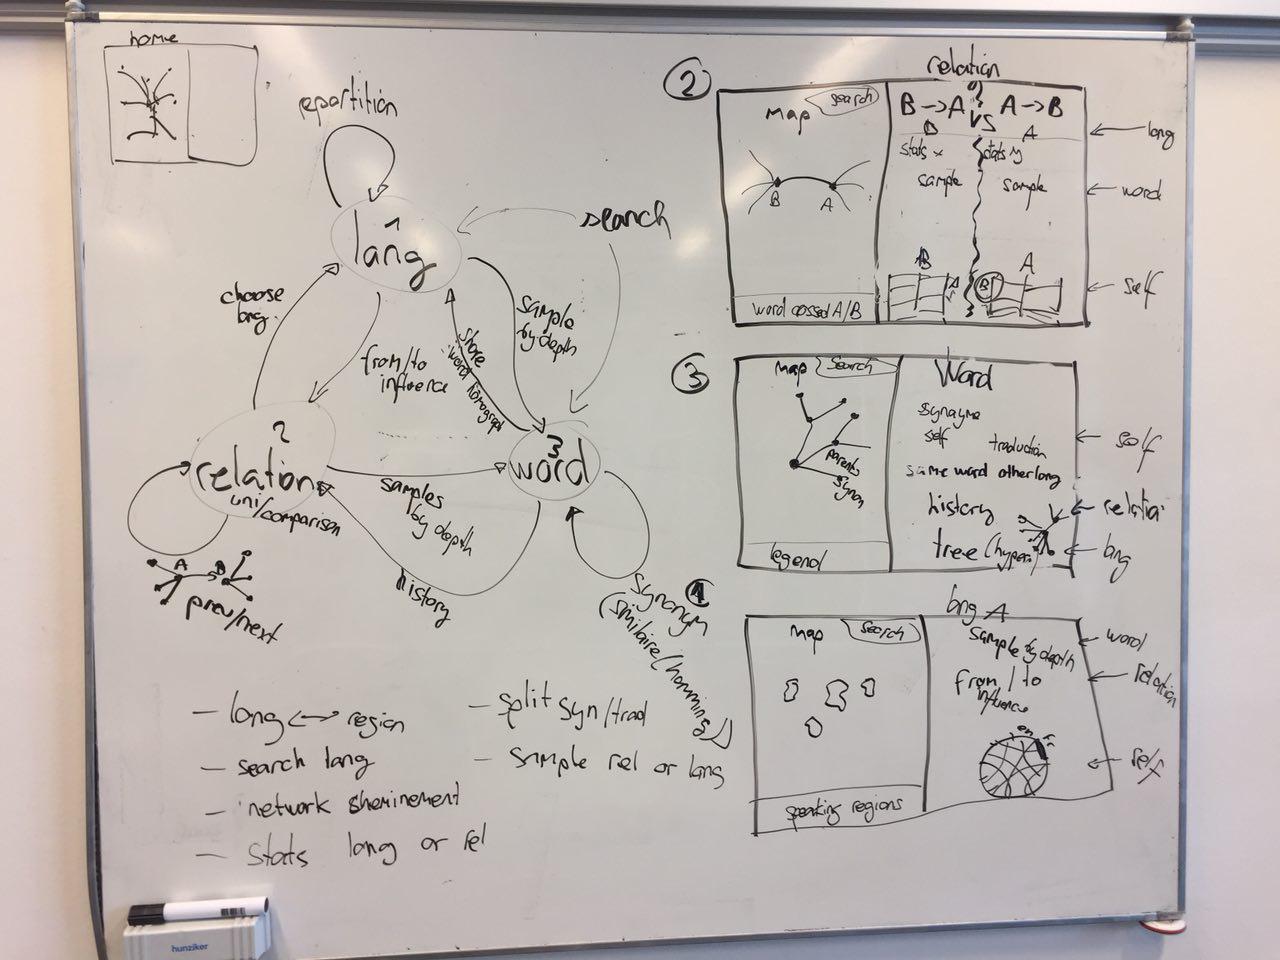 home
repartition
1
lang
search
choose
lang.
from/to
influence
share
word homograph
sample
by depth
2
relation
uni/comparison
samples
by depth
3
word
history
A B
prev/next
synonym
(similaire/hamming)
- lang <-> region
- search lang
- network sheminement
- stats lang or rel
- split syn/trad
- sample rel or lang
2
relation
map
search
B -> A
VS
A -> B
B
A
stats x
stats y
sample
sample
B
A
B
A
A
B
word cossed A/B
lang
word
self
3
map
Search
parents
synon
legend
Word
synayme
self
traduction
same word other lang
history
tree (hyper)
self
relatio
lang
1
lang A
map
Search
speaking regions
sample by depth
from / to
influence
en fr
word
relation
self
hunziker